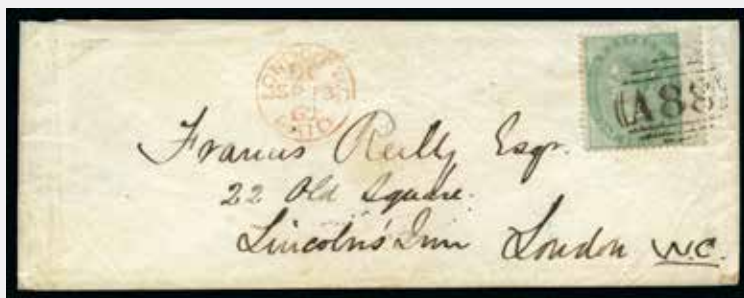 LONDON
A88
Francis Reilly Esqr.
22 Old Square.
Lincoln's Inn London W.C.